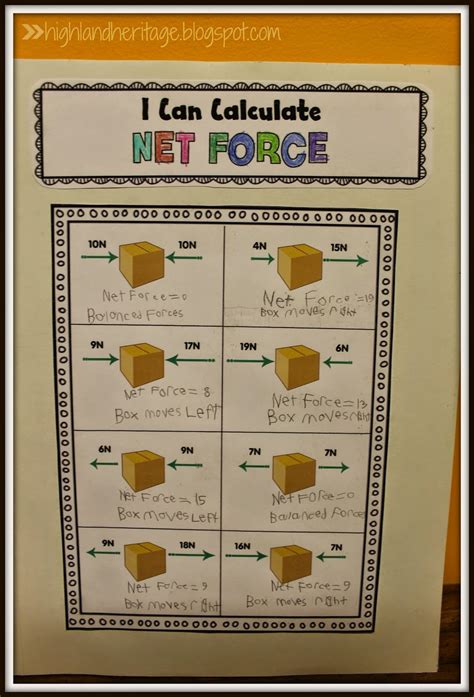 highlandheritage.blogspot.com
I Can Calculate
NET FORCE
10N 10N
Net Force=0
Balanced Forces
4N 15N
Net Force=19
Box moves right
9N 17N
Net Force=8
Box moves Left
19N 6N
Net Force=13
Box moves right
6N 9N
Net Force=15
Box moves Left
7N 7N
Net Force=0
Balanced Forces
9N 18N
Net Force=9
Box moves right
16N 7N
Net Force=9
Box moves right